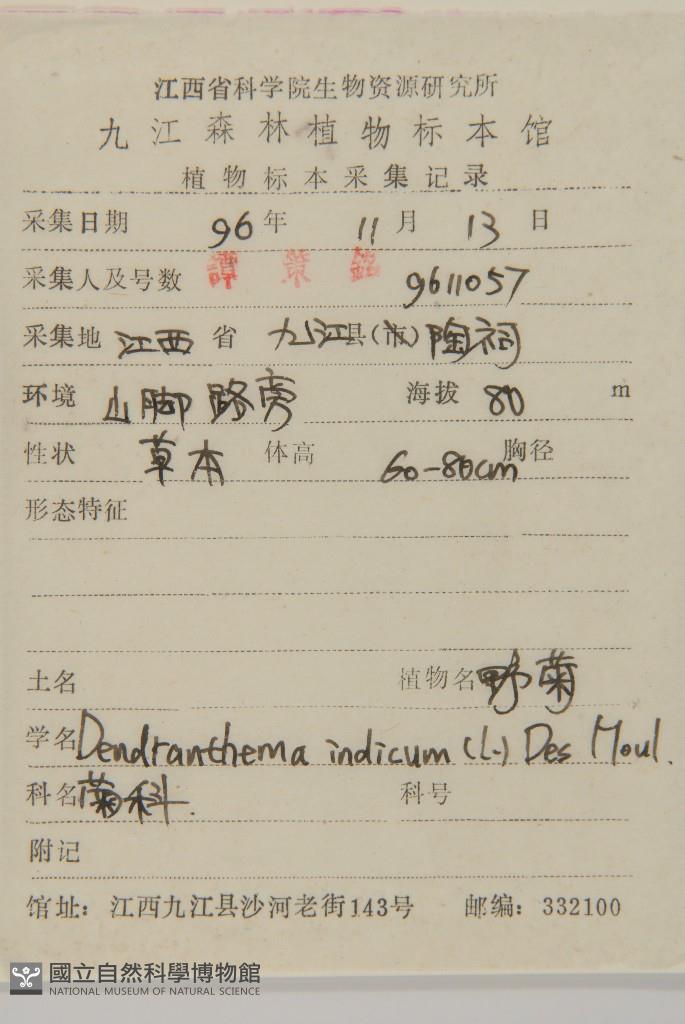 江西省科学院生物资源研究所
九江森林植物标本馆
植物标本采集记录
采集日期 96年 11月 13日
采集人及号数 譚策銘 9611057
采集地 江西省 九江县(市) 陶祠
环境 山脚路旁 海拔 80 m
性状 草本 体高 60-80cm 胸径
形态特征
土名 植物名 野菊
学名 Dendranthema indicum (L.) Des Moul.
科名 菊科. 科号
附记
馆址：江西九江县沙河老街143号 邮编：332100
國立自然科學博物館
NATIONAL MUSEUM OF NATURAL SCIENCE